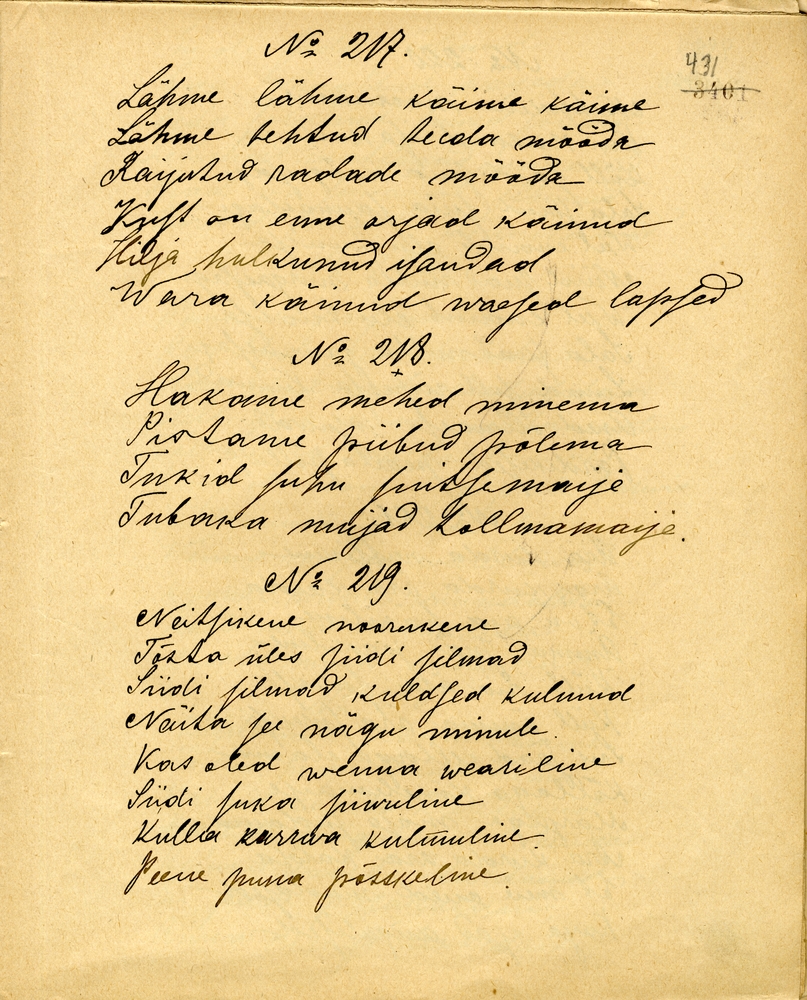 № 217.
431
3401
Lähme lähme käime käime
Lähme tehtud teeda mööda
Raijutud radade mööda
Kust on enne orjad käinud
Hilja hulkunud isandad
Wara käinud waesed lapsed
№ 218.
Hakame mehed minema
Pistame piibud põlema
Tukid suhu suitsemaije
Tubaka mujad tollmamaije.
№ 219.
Neitsikene noorukene
Tõsta üles siidi silmad
Siidi silmad kuldsed kulmud
Näita see nägu minule.
Kas oled wenna weariline
Siidi suka siiwuline
Kulla karrwa kulmuline.
Peene puna põsskeline.